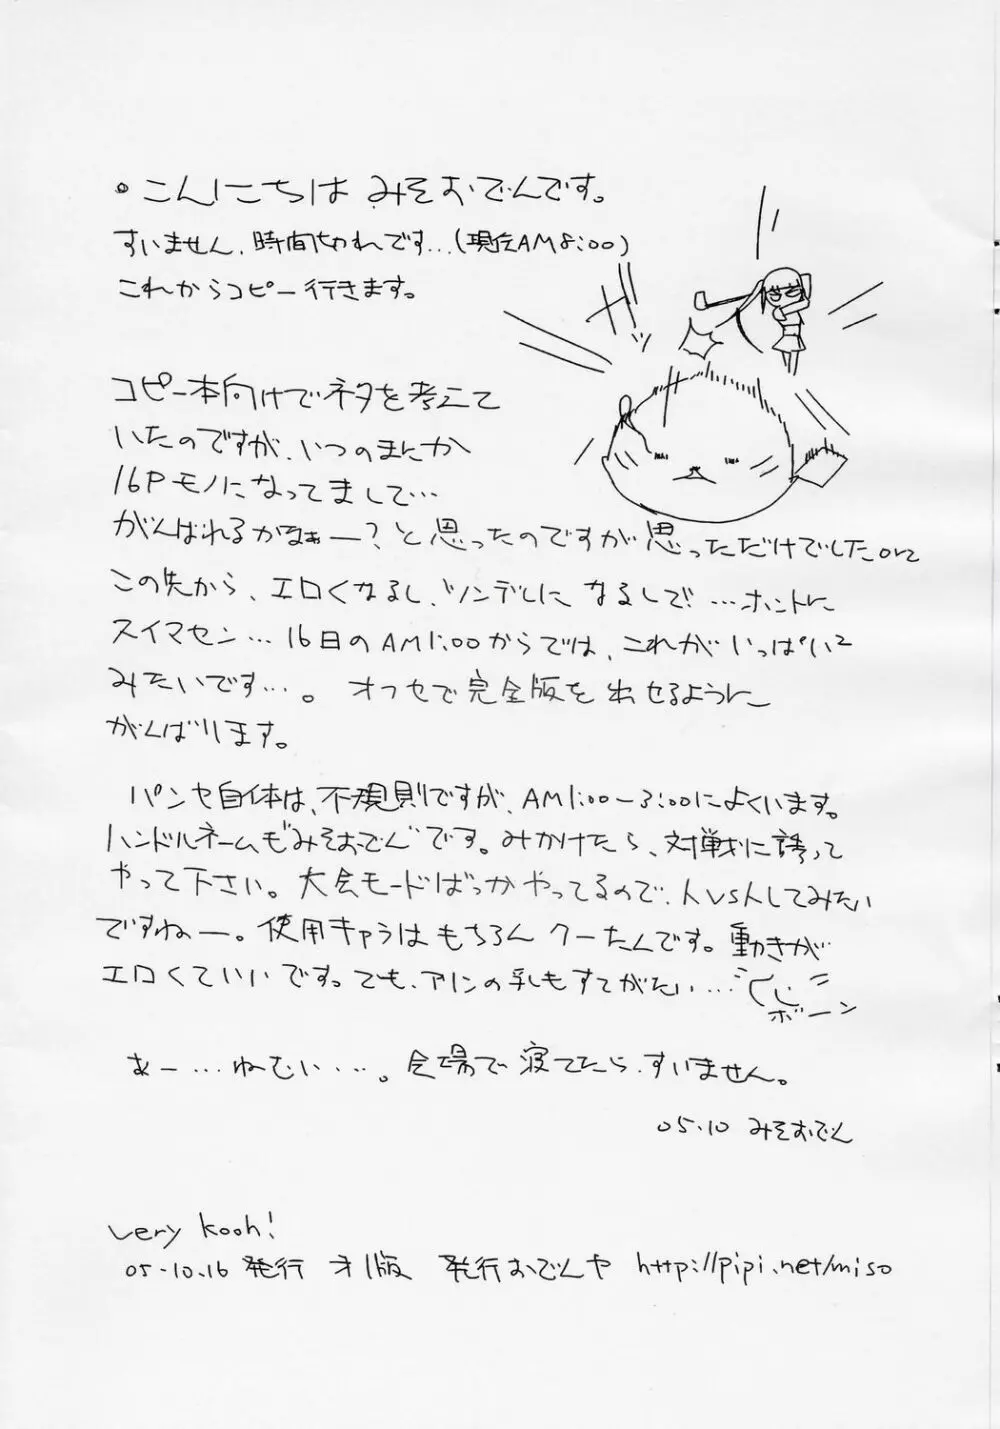 。こんにちは みそおでんです。
すいません、時間切れです…(現在AM8:00)
これからコピー行きます。
コピー本向けでネタを考えて
いたのですが、いつのまにか
16Pモノになってまして…
がんばれるかなぁー?と思ったのですが思っただけでしたorz
この先から、エロくなるし、ツンデレになるしで!…ホントに
スイマセン…16日のAM1:00からでは、これがいっぱい2
みたいです…。オフセで完全版を出せるように
がんばります。
パンヤ自体は、不規則ですが、AM1:00〜3:00によくいます。
ハンドルネームも"みそおでん"です。みかけたら、対戦に誘って
やって下さい。大会モードばっかやってるので、人vs人してみたい
ですねー。使用キャラはもちろんクーたんです。動きが
エロくていいです。でも、アリンの乳もすてがたい…
ボーン
あー…ねむい…。会場で寝てたら、すいません。
05.10 みそおでん
Very kooh!
05.10.16発行 オ1版 発行おでんや http://pipi.net/miso